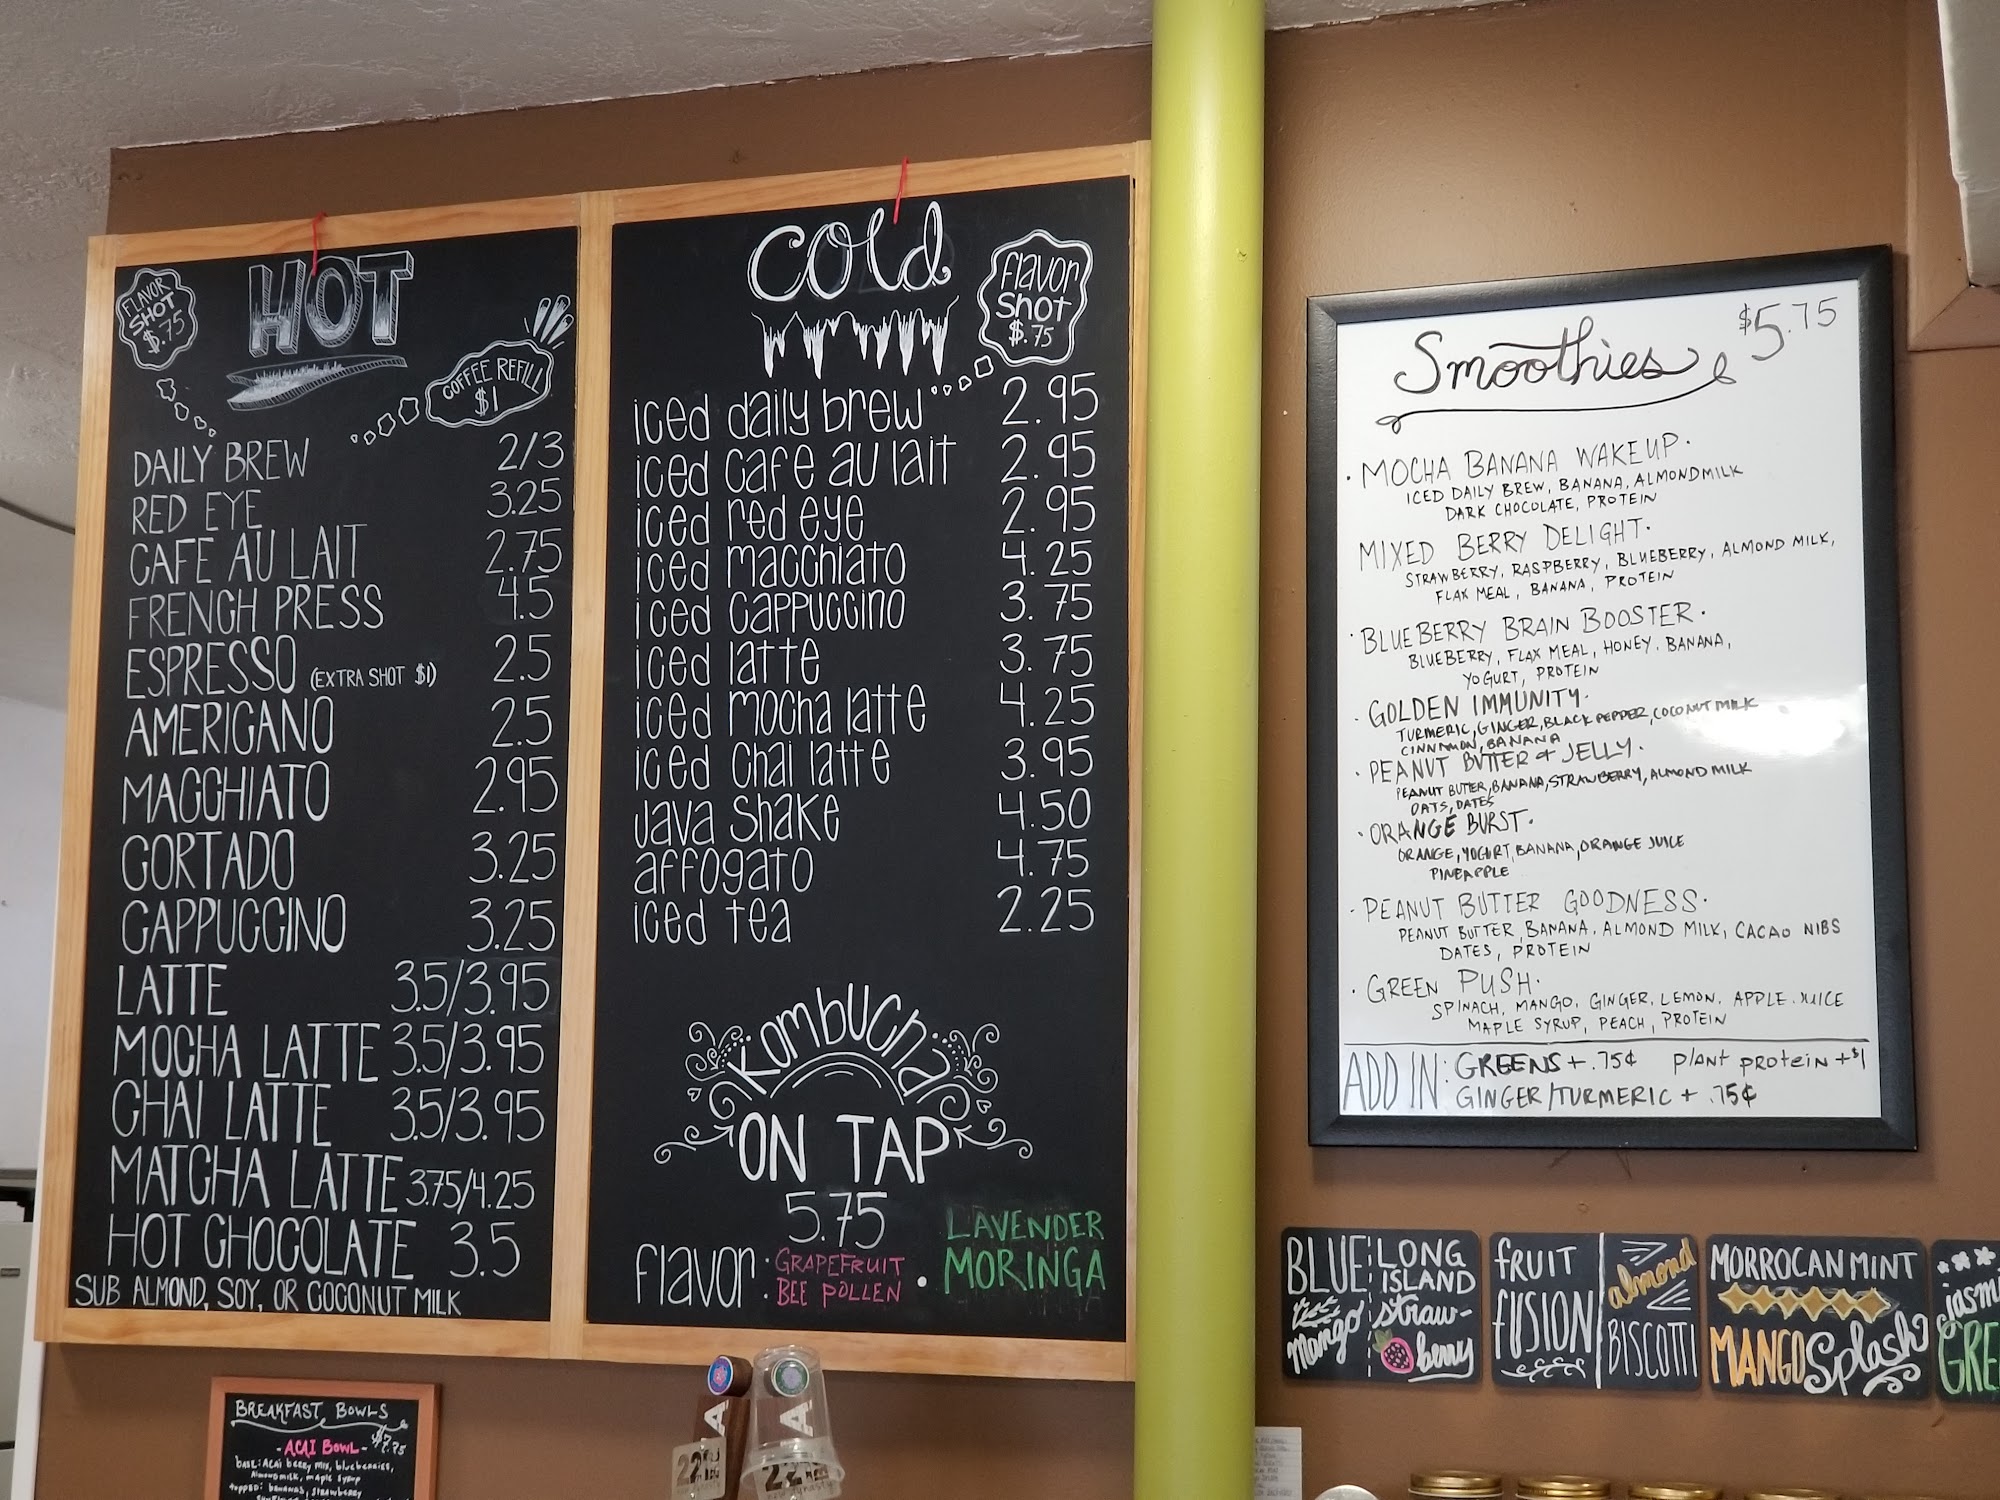 FLAVOR
SHOT
$.75
HOT
COFFEE REFILL
$1
DAILY BREW 2/3
RED EYE 3.25
CAFE AU LAIT 2.75
FRENCH PRESS 4.5
ESPRESSO (EXTRA SHOT $1) 2.5
AMERICANO 2.5
MACCHIATO 2.95
CORTADO 3.25
CAPPUCCINO 3.25
LATTE 3.5/3.95
MOCHA LATTE 3.5/3.95
CHAI LATTE 3.5/3.95
MATCHA LATTE 3.75/4.25
HOT CHOCOLATE 3.5
SUB ALMOND, SOY, OR COCONUT MILK
Cold
Flavor
Shot
$.75
iced daily brew 2.95
iced cafe au lait 2.95
iced red eye 2.95
iced macchiato 4.25
iced cappuccino 3.75
iced latte 3.75
iced mocha latte 4.25
iced chai latte 3.95
Java Shake 4.50
affogato 4.75
iced tea 2.25
Kombucha
ON TAP
5.75
flavor: GRAPEFRUIT
BEE POLLEN
• LAVENDER
MORINGA
Smoothies $5.75
• MOCHA BANANA WAKEUP •
ICED DAILY BREW, BANANA, ALMONDMILK
DARK CHOCOLATE, PROTEIN
MIXED BERRY DELIGHT •
STRAWBERRY, RASPBERRY, BLUEBERRY, ALMOND MILK,
FLAX MEAL, BANANA, PROTEIN
• BLUEBERRY BRAIN BOOSTER •
BLUEBERRY, FLAX MEAL, HONEY, BANANA,
YOGURT, PROTEIN
• GOLDEN IMMUNITY •
TURMERIC, GINGER, BLACK PEPPER, COCONUT MILK
CINNAMON, BANANA
• PEANUT BUTTER & JELLY •
PEANUT BUTTER, BANANA, STRAWBERRY, ALMOND MILK
OATS, DATES
• ORANGE BURST •
ORANGE, YOGURT, BANANA, ORANGE JUICE
PINEAPPLE
• PEANUT BUTTER GOODNESS •
PEANUT BUTTER, BANANA, ALMOND MILK, CACAO NIBS
DATES, PROTEIN
• GREEN PUSH •
SPINACH, MANGO, GINGER, LEMON, APPLE JUICE
MAPLE SYRUP, PEACH, PROTEIN
ADD IN: GREENS + .75¢ plant protein + $1
GINGER/TURMERIC + .75¢
BLUE
Mango
LONG
ISLAND
straw-
berry
FRUIT
FUSION
almond
BISCOTTI
MORROCAN MINT
MANGO Splash
jasmi
GRE
BREAKFAST BOWLS
- ACAI BOWL - $7.75
BASE: ACAI berry mix, blueberries,
Almond milk, maple syrup
topped: bananas, strawberry
A
22
A
22